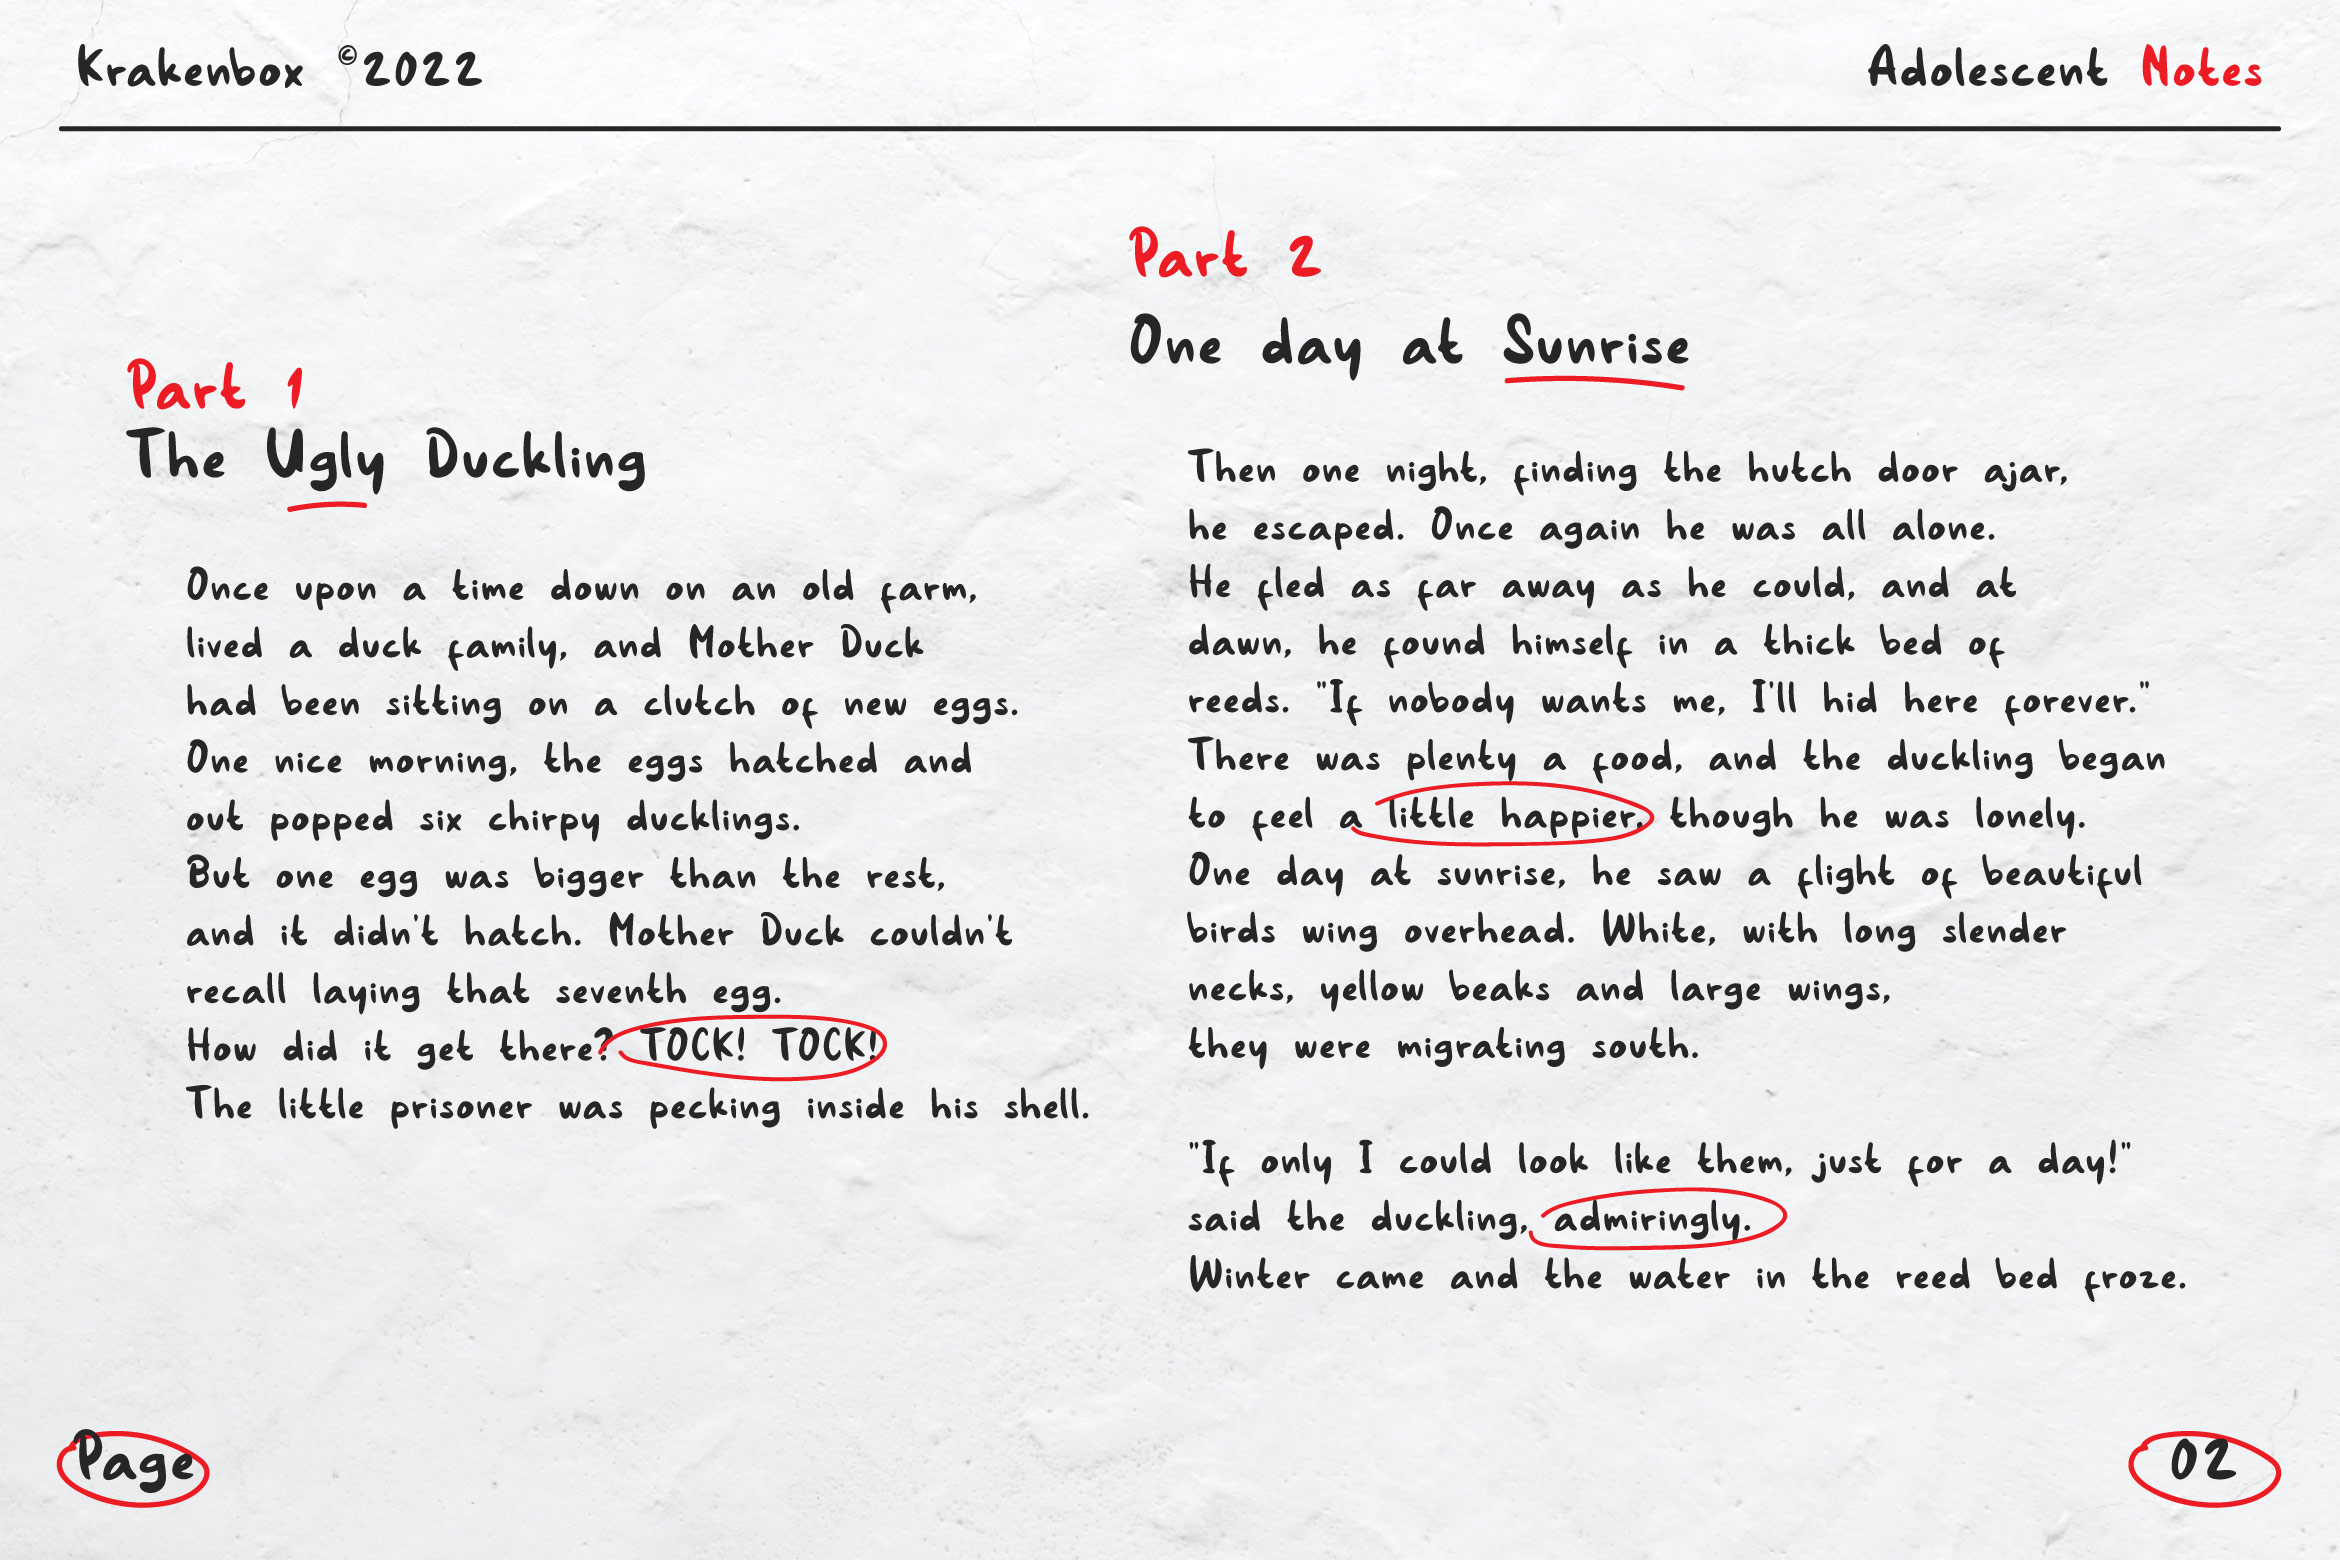 Krakenbox ©2022
Adolescent Notes
Part 1
The Ugly Duckling
Once upon a time down on an old farm,
lived a duck family, and Mother Duck
had been sitting on a clutch of new eggs.
One nice morning, the eggs hatched and
out popped six chirpy ducklings.
But one egg was bigger than the rest,
and it didn't hatch. Mother Duck couldn't
recall laying that seventh egg.
How did it get there? TOCK! TOCK!
The little prisoner was pecking inside his shell.
Part 2
One day at Sunrise
Then one night, finding the hutch door ajar,
he escaped. Once again he was all alone.
He fled as far away as he could, and at
dawn, he found himself in a thick bed of
reeds. "If nobody wants me, I'll hid here forever."
There was plenty a food, and the duckling began
to feel a little happier, though he was lonely.
One day at sunrise, he saw a flight of beautiful
birds wing overhead. White, with long slender
necks, yellow beaks and large wings,
they were migrating south.
"If only I could look like them, just for a day!"
said the duckling, admiringly.
Winter came and the water in the reed bed froze.
Page
02